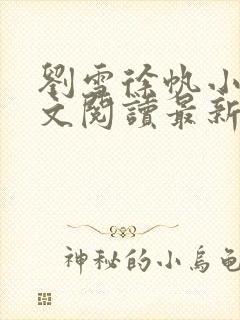 劉雪徐帆小
文閱讀最新
神秘的小烏龜